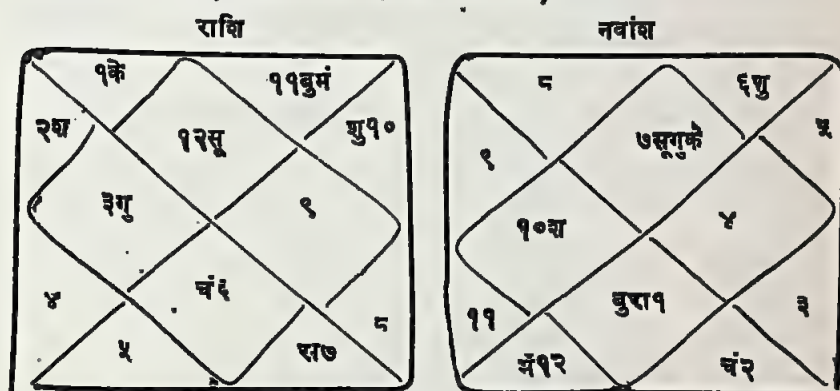 राशि
१के
११बुमं
२श
१२सू
शु१०
३गु
९
४
चं६
८
५
रा७
नवांश
८
६शु
९
७सूगुके
५
१०श
४
११
बुरा१
३
मं१२
चं२